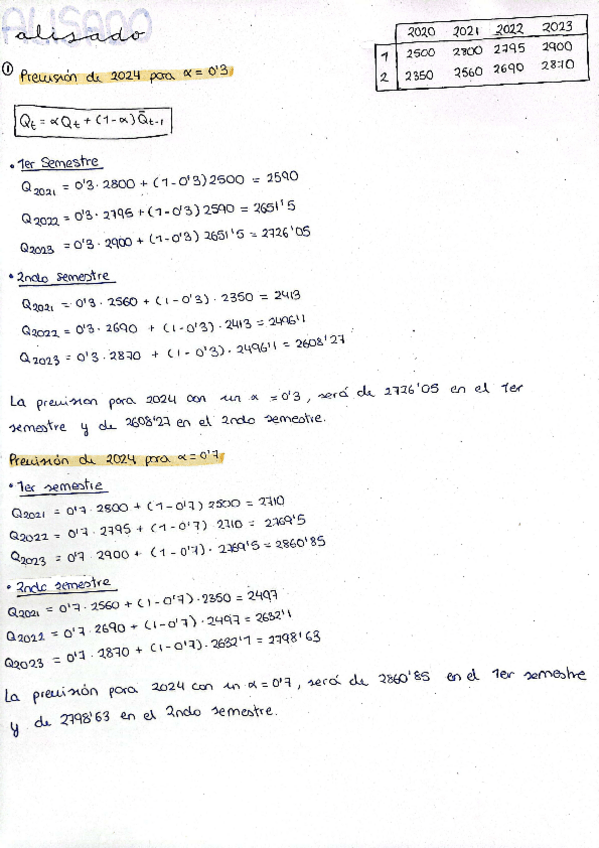 ALISADO
alisado
2020 2021 2022 2023
1 2500 2800 2795 2900
2 2350 2560 2690 2870
① Previsión de 2024 para α = 0'3
Qt = αQt + (1-α) Q̄t-1
• 1er Semestre
Q2021 = 0'3 · 2800 + (1-0'3) 2500 = 2590
Q2022 = 0'3 · 2795 + (1-0'3) 2590 = 2651'5
Q2023 = 0'3 · 2900 + (1-0'3) 2651'5 = 2726'05
• 2ndo semestre
Q2021 = 0'3 · 2560 + (1-0'3) · 2350 = 2413
Q2022 = 0'3 · 2690 + (1-0'3) · 2413 = 2496'1
Q2023 = 0'3 · 2870 + (1-0'3) · 2496'1 = 2608'27
La prevision para 2024 con un α = 0'3, será de 2726'05 en el 1er
semestre y de 2608'27 en el 2ndo semestre.
Previsión de 2024 para α = 0'7
• 1er semestre
Q2021 = 0'7 · 2800 + (1-0'7) 2500 = 2710
Q2022 = 0'7 · 2795 + (1-0'7) 2710 = 2769'5
Q2023 = 0'7 · 2900 + (1-0'7) · 2769'5 = 2860'85
• 2ndo semestre
Q2021 = 0'7 · 2560 + (1-0'7) · 2350 = 2497
Q2022 = 0'7 · 2690 + (1-0'7) · 2497 = 2632'1
Q2023 = 0'7 · 2870 + (1-0'7) · 2632'1 = 2798'63
La previsión para 2024 con un α = 0'7, será de 2860'85 en el 1er semestre
y de 2798'63 en el 2ndo semestre.